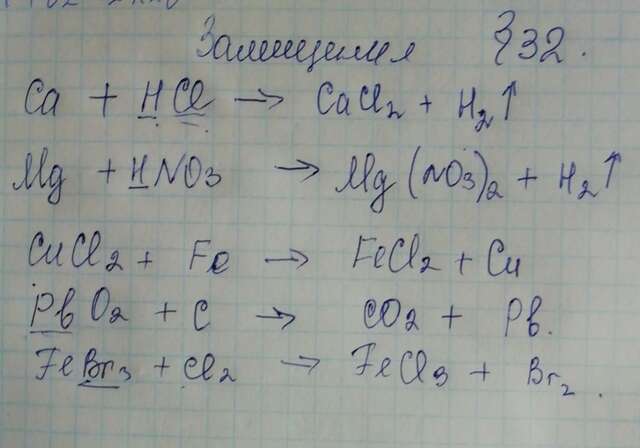 Замещения §32.
Ca + HCl → CaCl2 + H2↑
Mg + HNO3 → Mg(NO3)2 + H2↑
CuCl2 + Fe → FeCl2 + Cu
PbO2 + C → CO2 + Pb.
FeBr3 + Cl2 → FeCl3 + Br2.